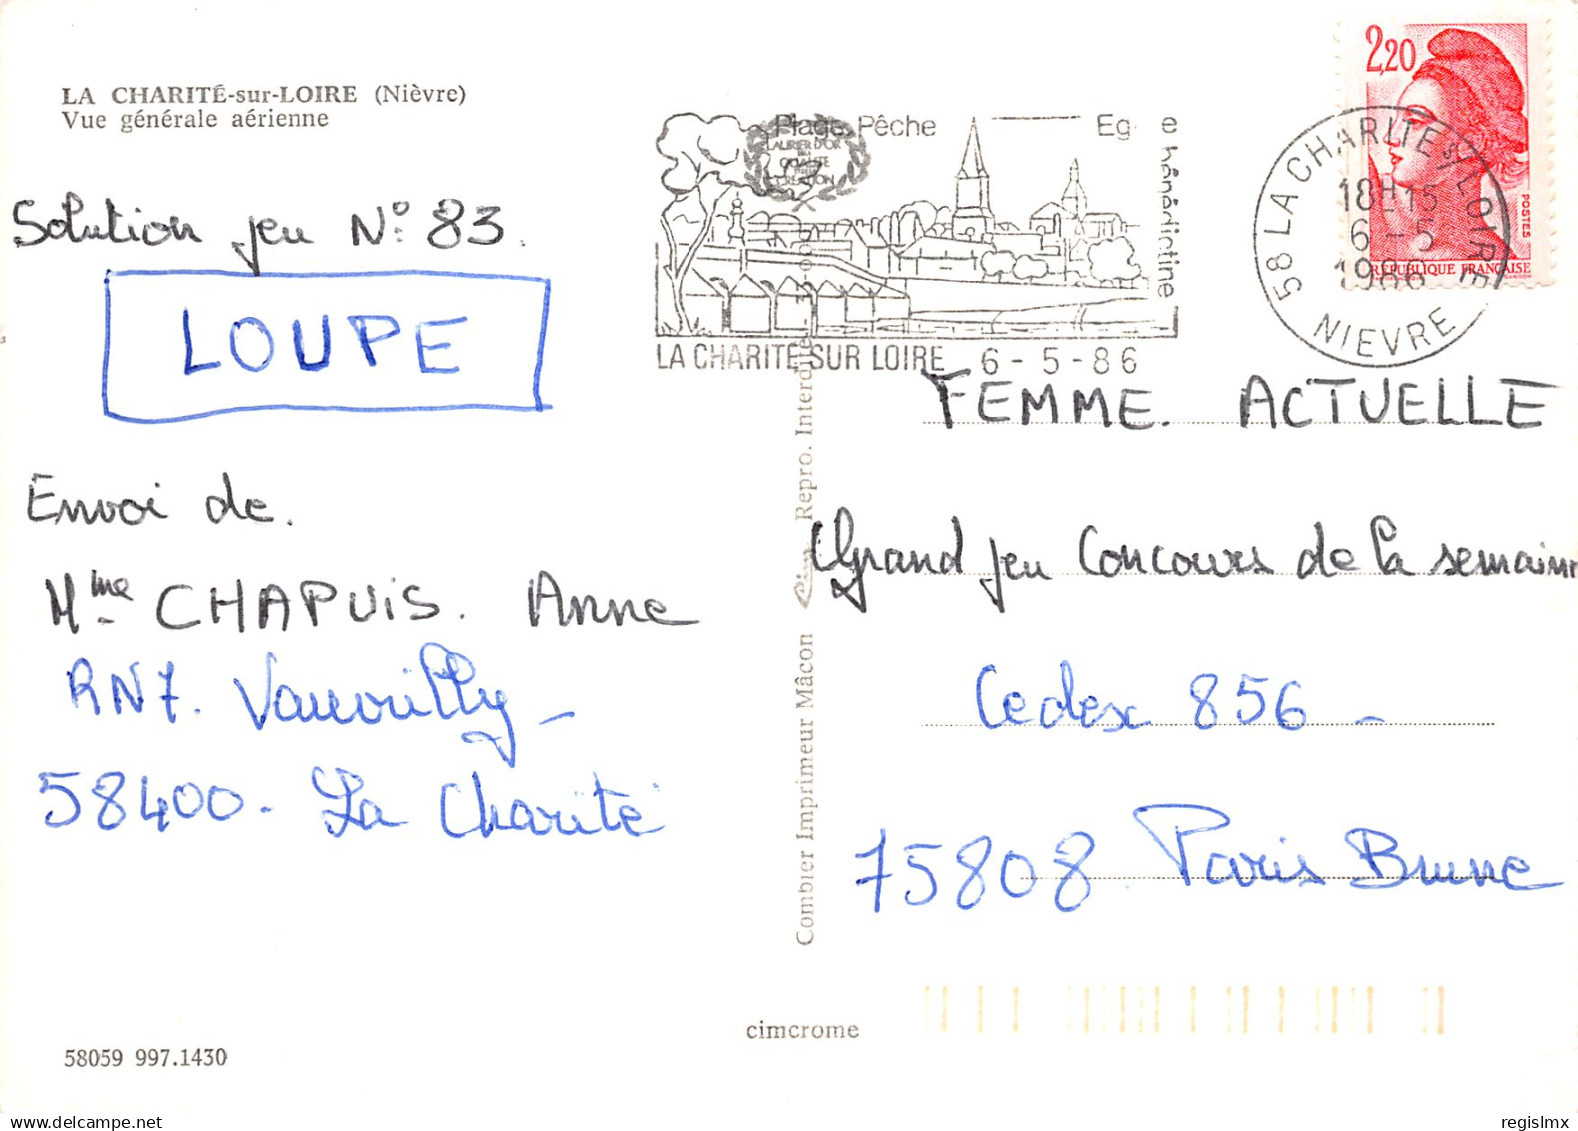 LA CHARITÉ-sur-LOIRE (Nièvre)
Vue générale aérienne
Solution jeu N° 83.
LOUPE
Envoi de.
Mme CHAPUIS. Anne
RN7. Vauvrilly -
58400 - La Charité
58059 997.1430
Combier Imprimeur Mâcon Repro. Interdite
cimcrome
Plage Pêche Eg e bénédictine
LAURIER D'OR
DE LA
QUALITÉ
CRÉATION
LA CHARITE SUR LOIRE 6-5-86
58 LA CHARITE S/ LOIRE
18H15
6-5
1986
NIEVRE
2,20
POSTES
RÉPUBLIQUE FRANÇAISE
FEMME. ACTUELLE
Grand jeu Concours de la semain
Cedex 856 -
75808 Paris Brune
regislmx